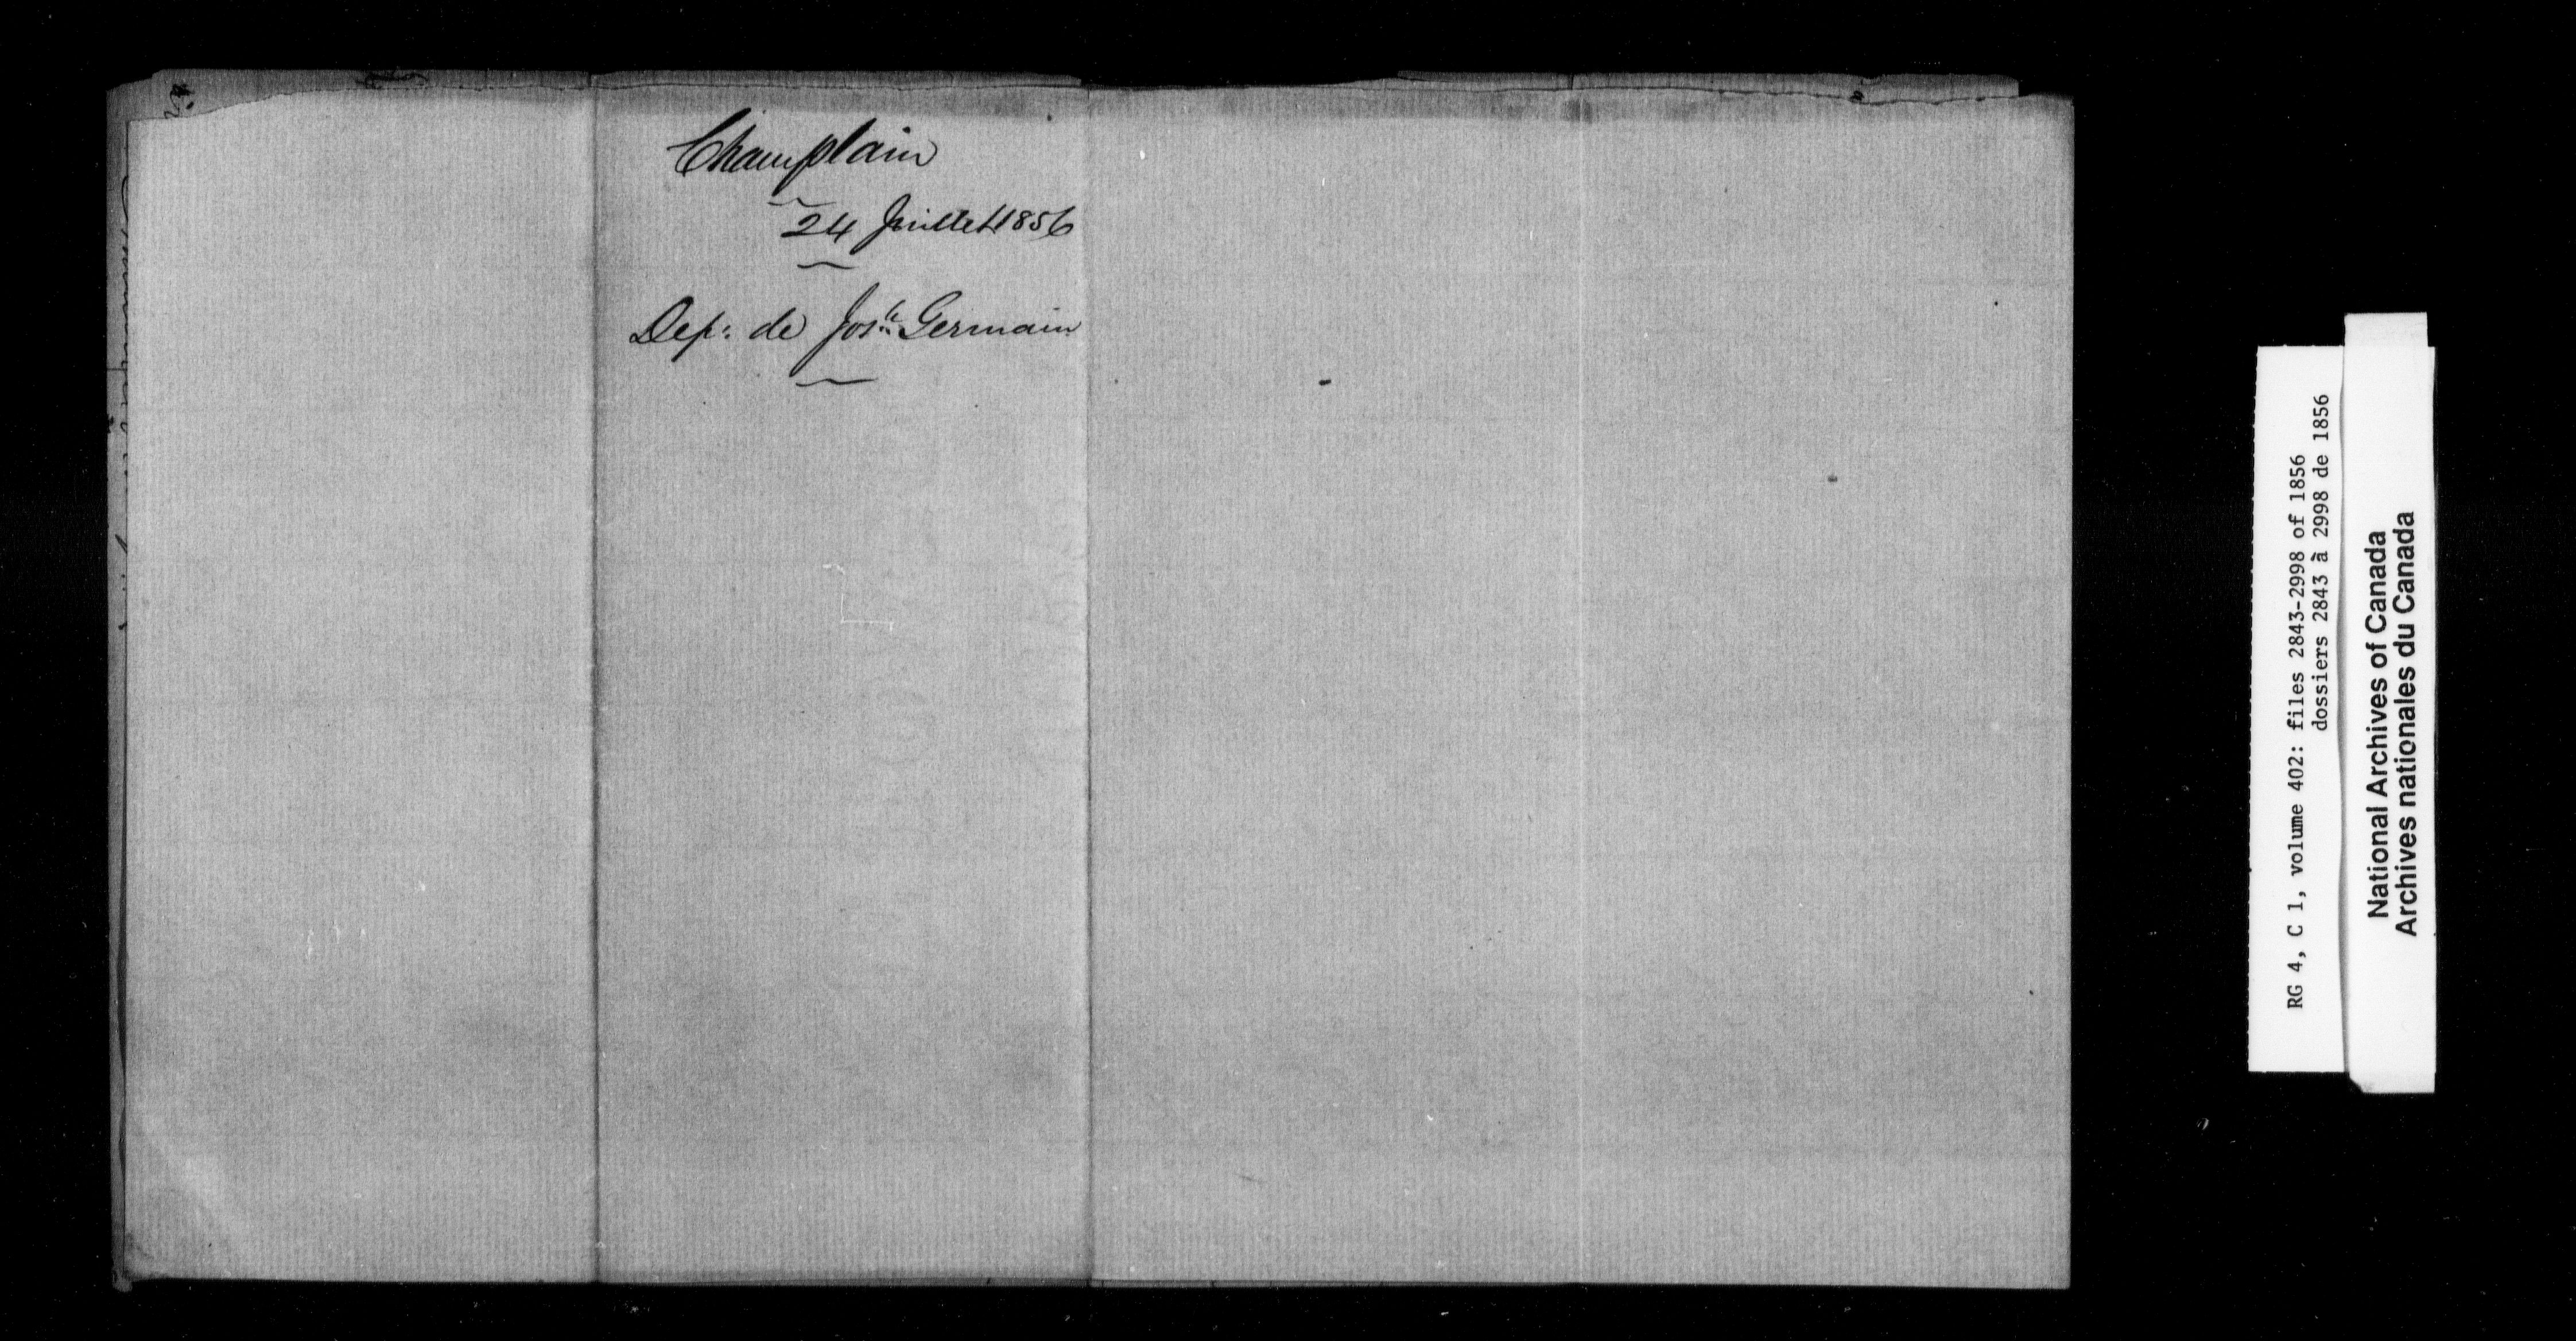 Champlain
24 Juillet 1856
Dep: de Jos.te Germain
RG 4, C 1, volume 402: files 2843-2998 of 1856
dossiers 2843 à 2998 de 1856
National Archives of Canada
Archives nationales du Canada